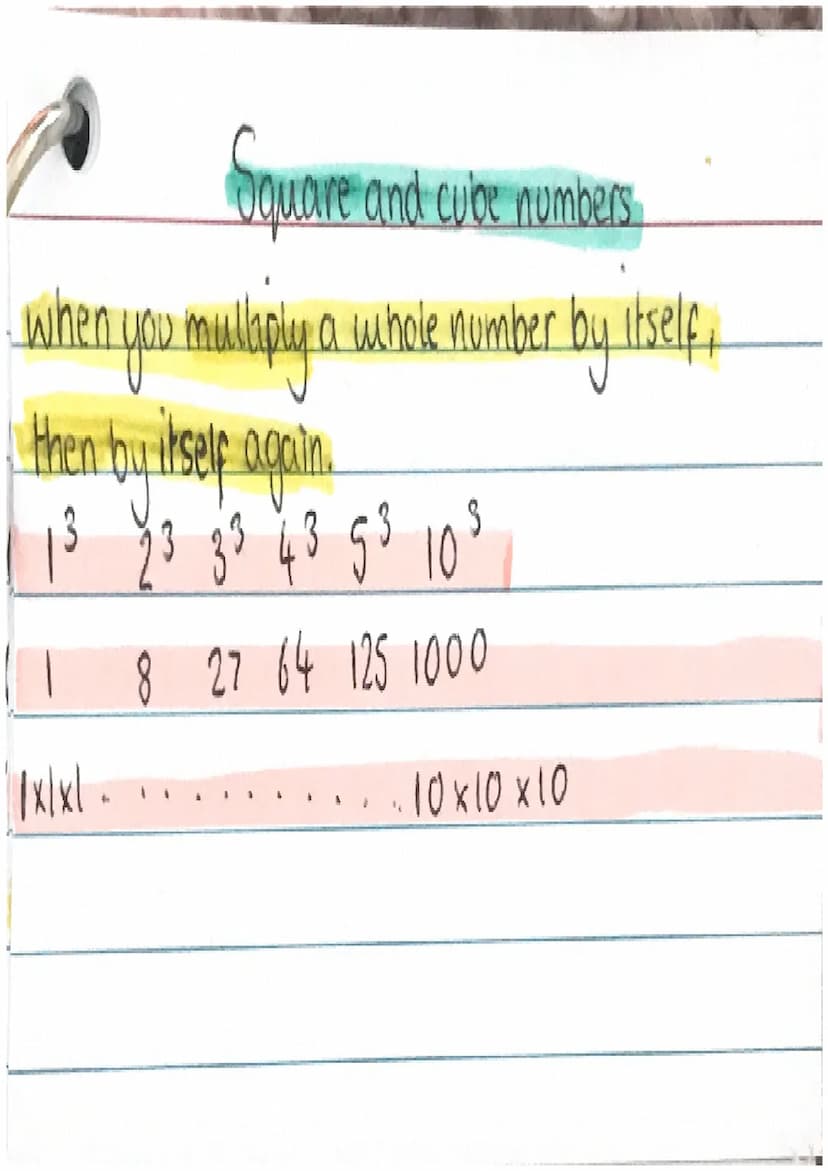 Square and cube numbers
when you multiply a whole number by itself,
then by itself again.
1³ 2³ 3³ 4³ 5³ 10³
1 8 27 64 125 1000
1x1x1. . . . . . . . . . . . 10x10x10